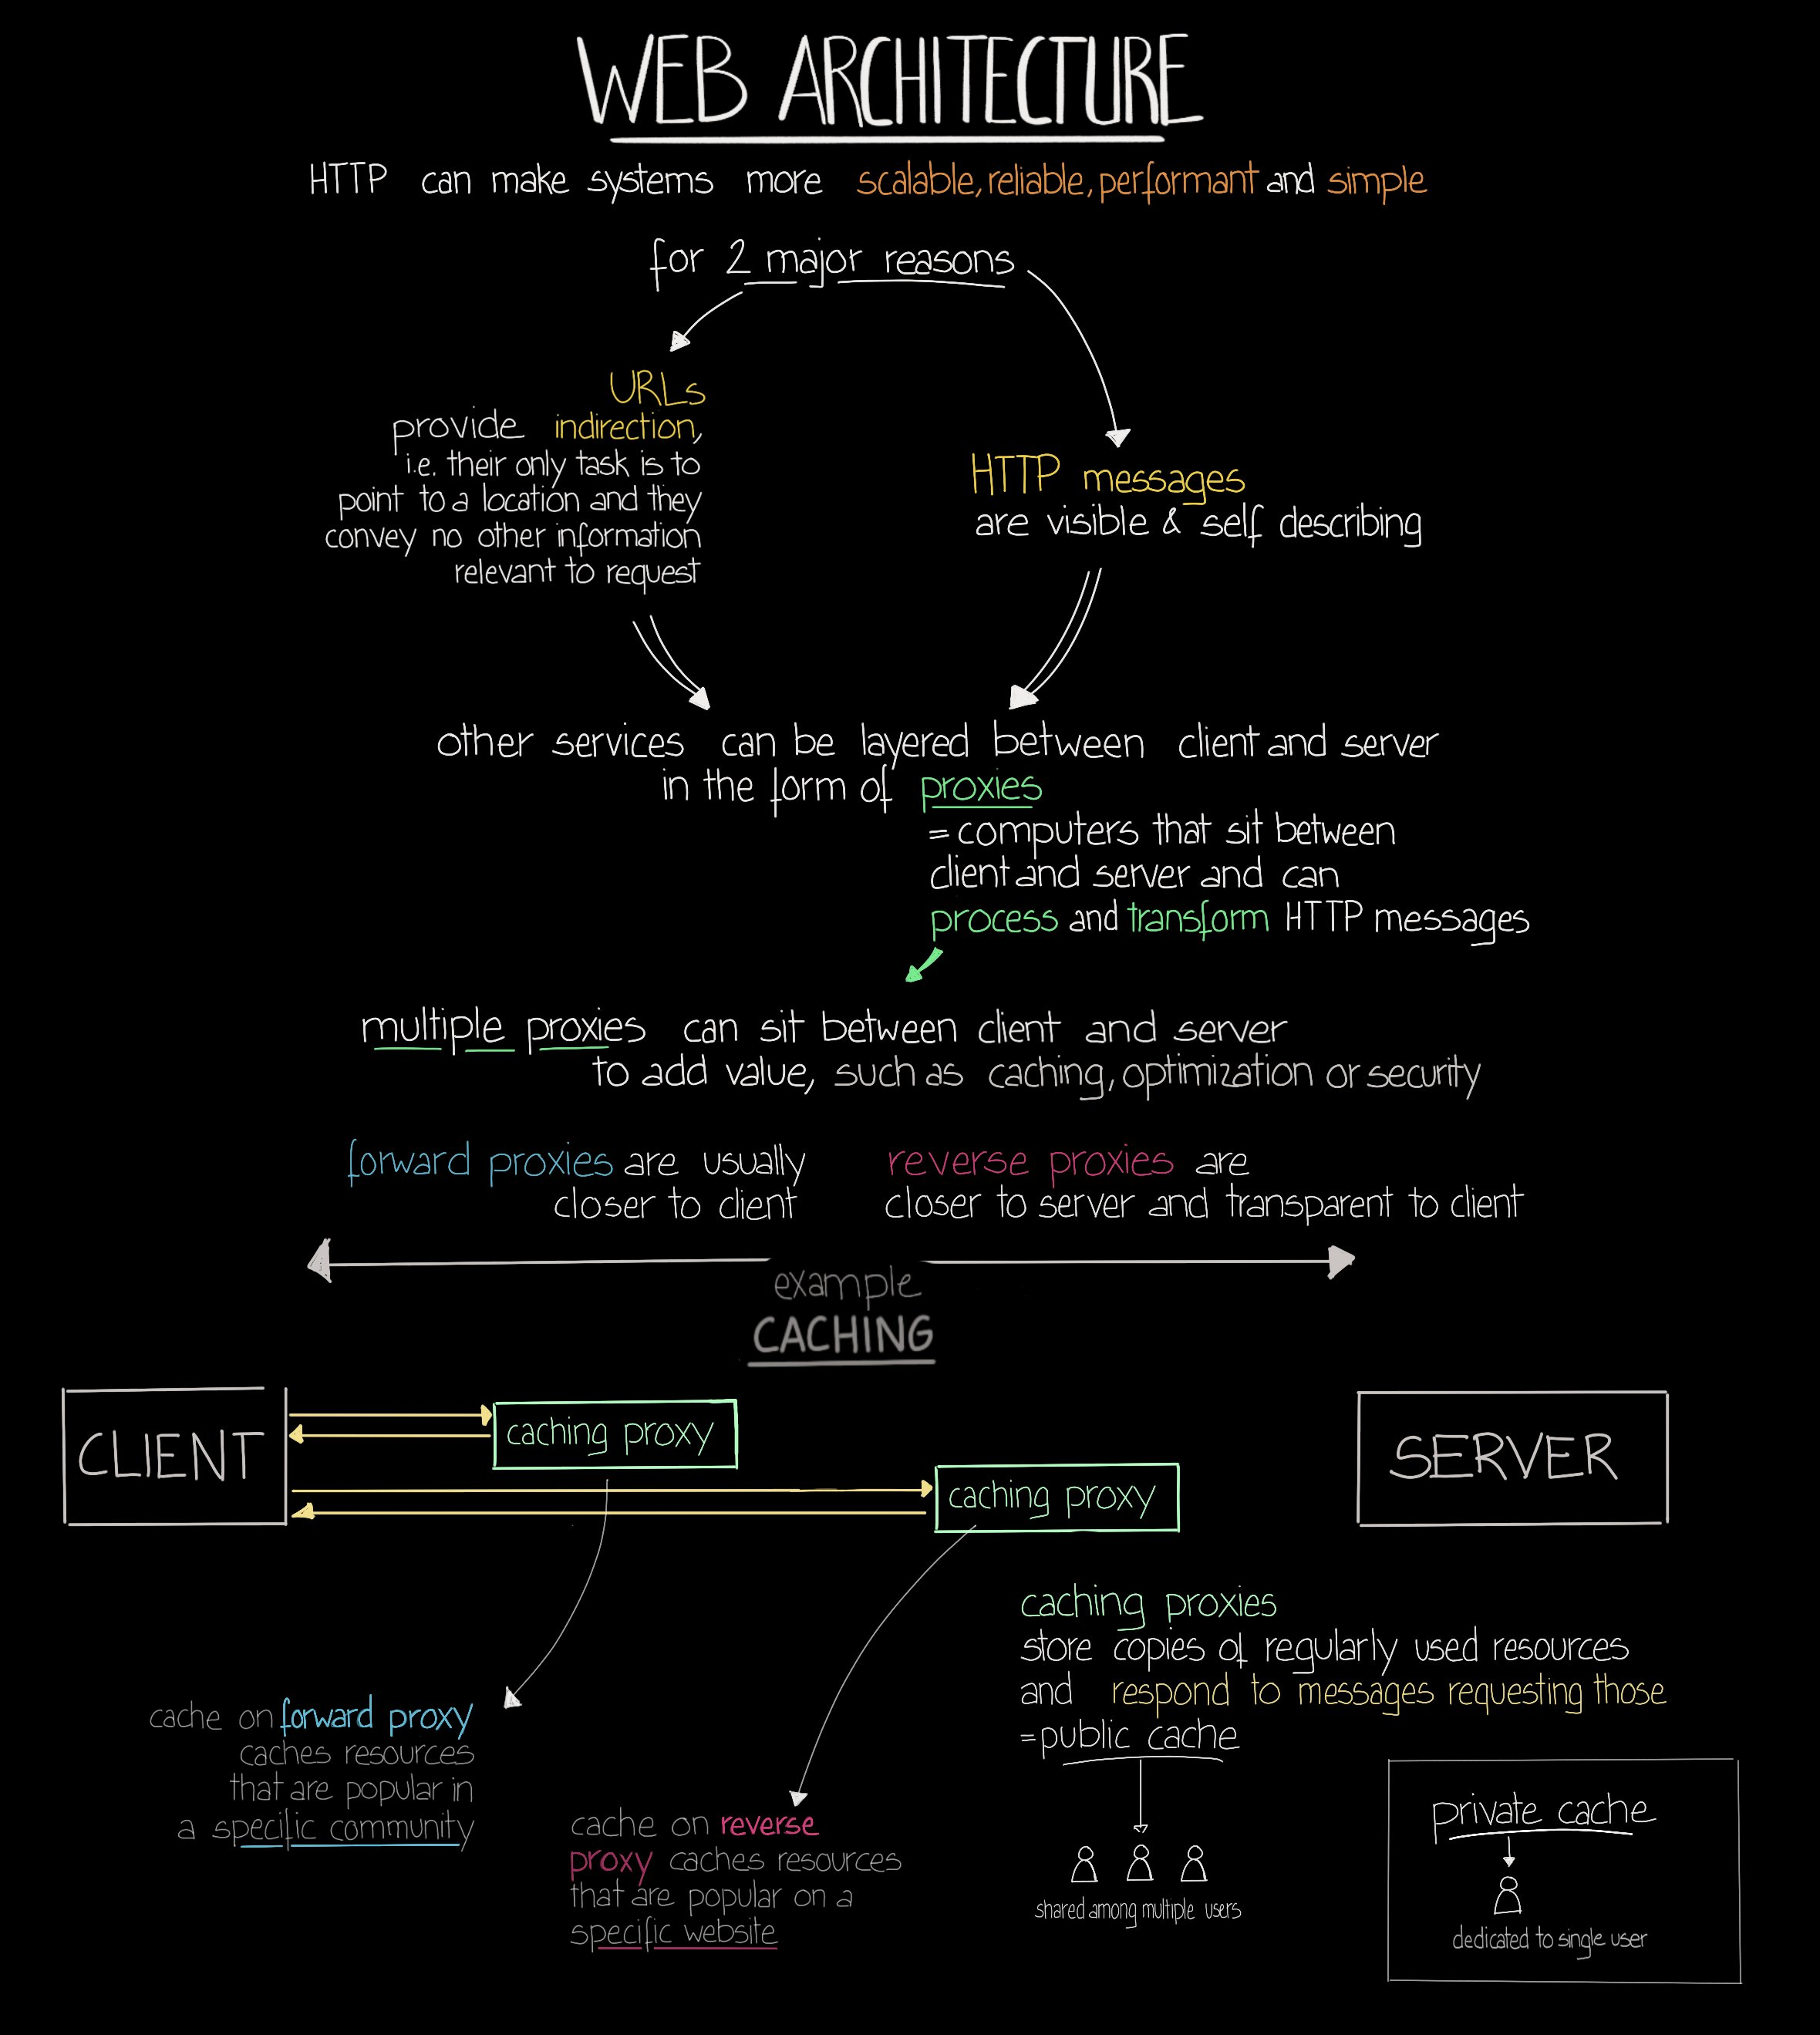 WEB ARCHITECTURE
HTTP can make systems more scalable, reliable, performant and simple
for 2 major reasons
URLs
provide indirection,
i.e. their only task is to
point to a location and they
convey no other information
relevant to request
HTTP messages
are visible & self describing
other services can be layered between client and server
in the form of proxies
= computers that sit between
client and server and can
process and transform HTTP messages
multiple proxies can sit between client and server
to add value, such as caching, optimization or security
forward proxies are usually
closer to client
reverse proxies are
closer to server and transparent to client
example
CACHING
CLIENT
caching proxy
caching proxy
SERVER
cache on forward proxy
caches resources
that are popular in
a specific community
cache on reverse
proxy caches resources
that are popular on a
specific website
caching proxies
store copies of regularly used resources
and respond to messages requesting those
= public cache
shared among multiple users
private cache
dedicated to single user